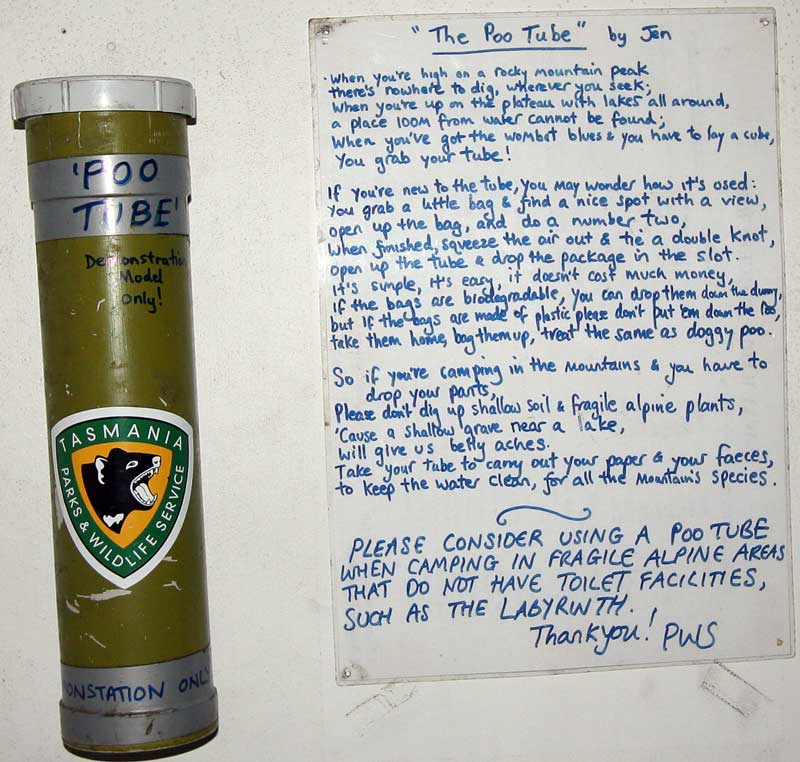 'POO
TUBE'
Demonstration
Model
Only!
TASMANIA
PARKS & WILDLIFE SERVICE
ONSTATION ONLY
"The Poo Tube" by Jen
When you're high on a rocky mountain peak
there's nowhere to dig, wherever you seek;
When you're up on the plateau with lakes all around,
a place 100m from water cannot be found;
When you've got the wombat blues & you have to lay a cube,
You grab your tube!
If you're new to the tube, you may wonder how it's used:
You grab a little bag & find a nice spot with a view,
open up the bag, and do a number two,
When finished, squeeze the air out & tie a double knot,
open up the tube & drop the package in the slot.
It's simple, it's easy, it doesn't cost much money,
If the bags are biodegradable, you can drop them down the dunny,
but if the bags are made of plastic please don't put 'em down the loo,
take them home, bag them up, treat the same as doggy poo.
So if you're camping in the mountains & you have to
drop your parts,
Please don't dig up shallow soil & fragile alpine plants,
'Cause a shallow grave near a lake,
will give us belly aches.
Take your tube to carry out your paper & your faeces,
to keep the water clean, for all the mountain's species.
PLEASE CONSIDER USING A POO TUBE
WHEN CAMPING IN FRAGILE ALPINE AREAS
THAT DO NOT HAVE TOILET FACILITIES,
SUCH AS THE LABYRINTH.
Thankyou! PWS